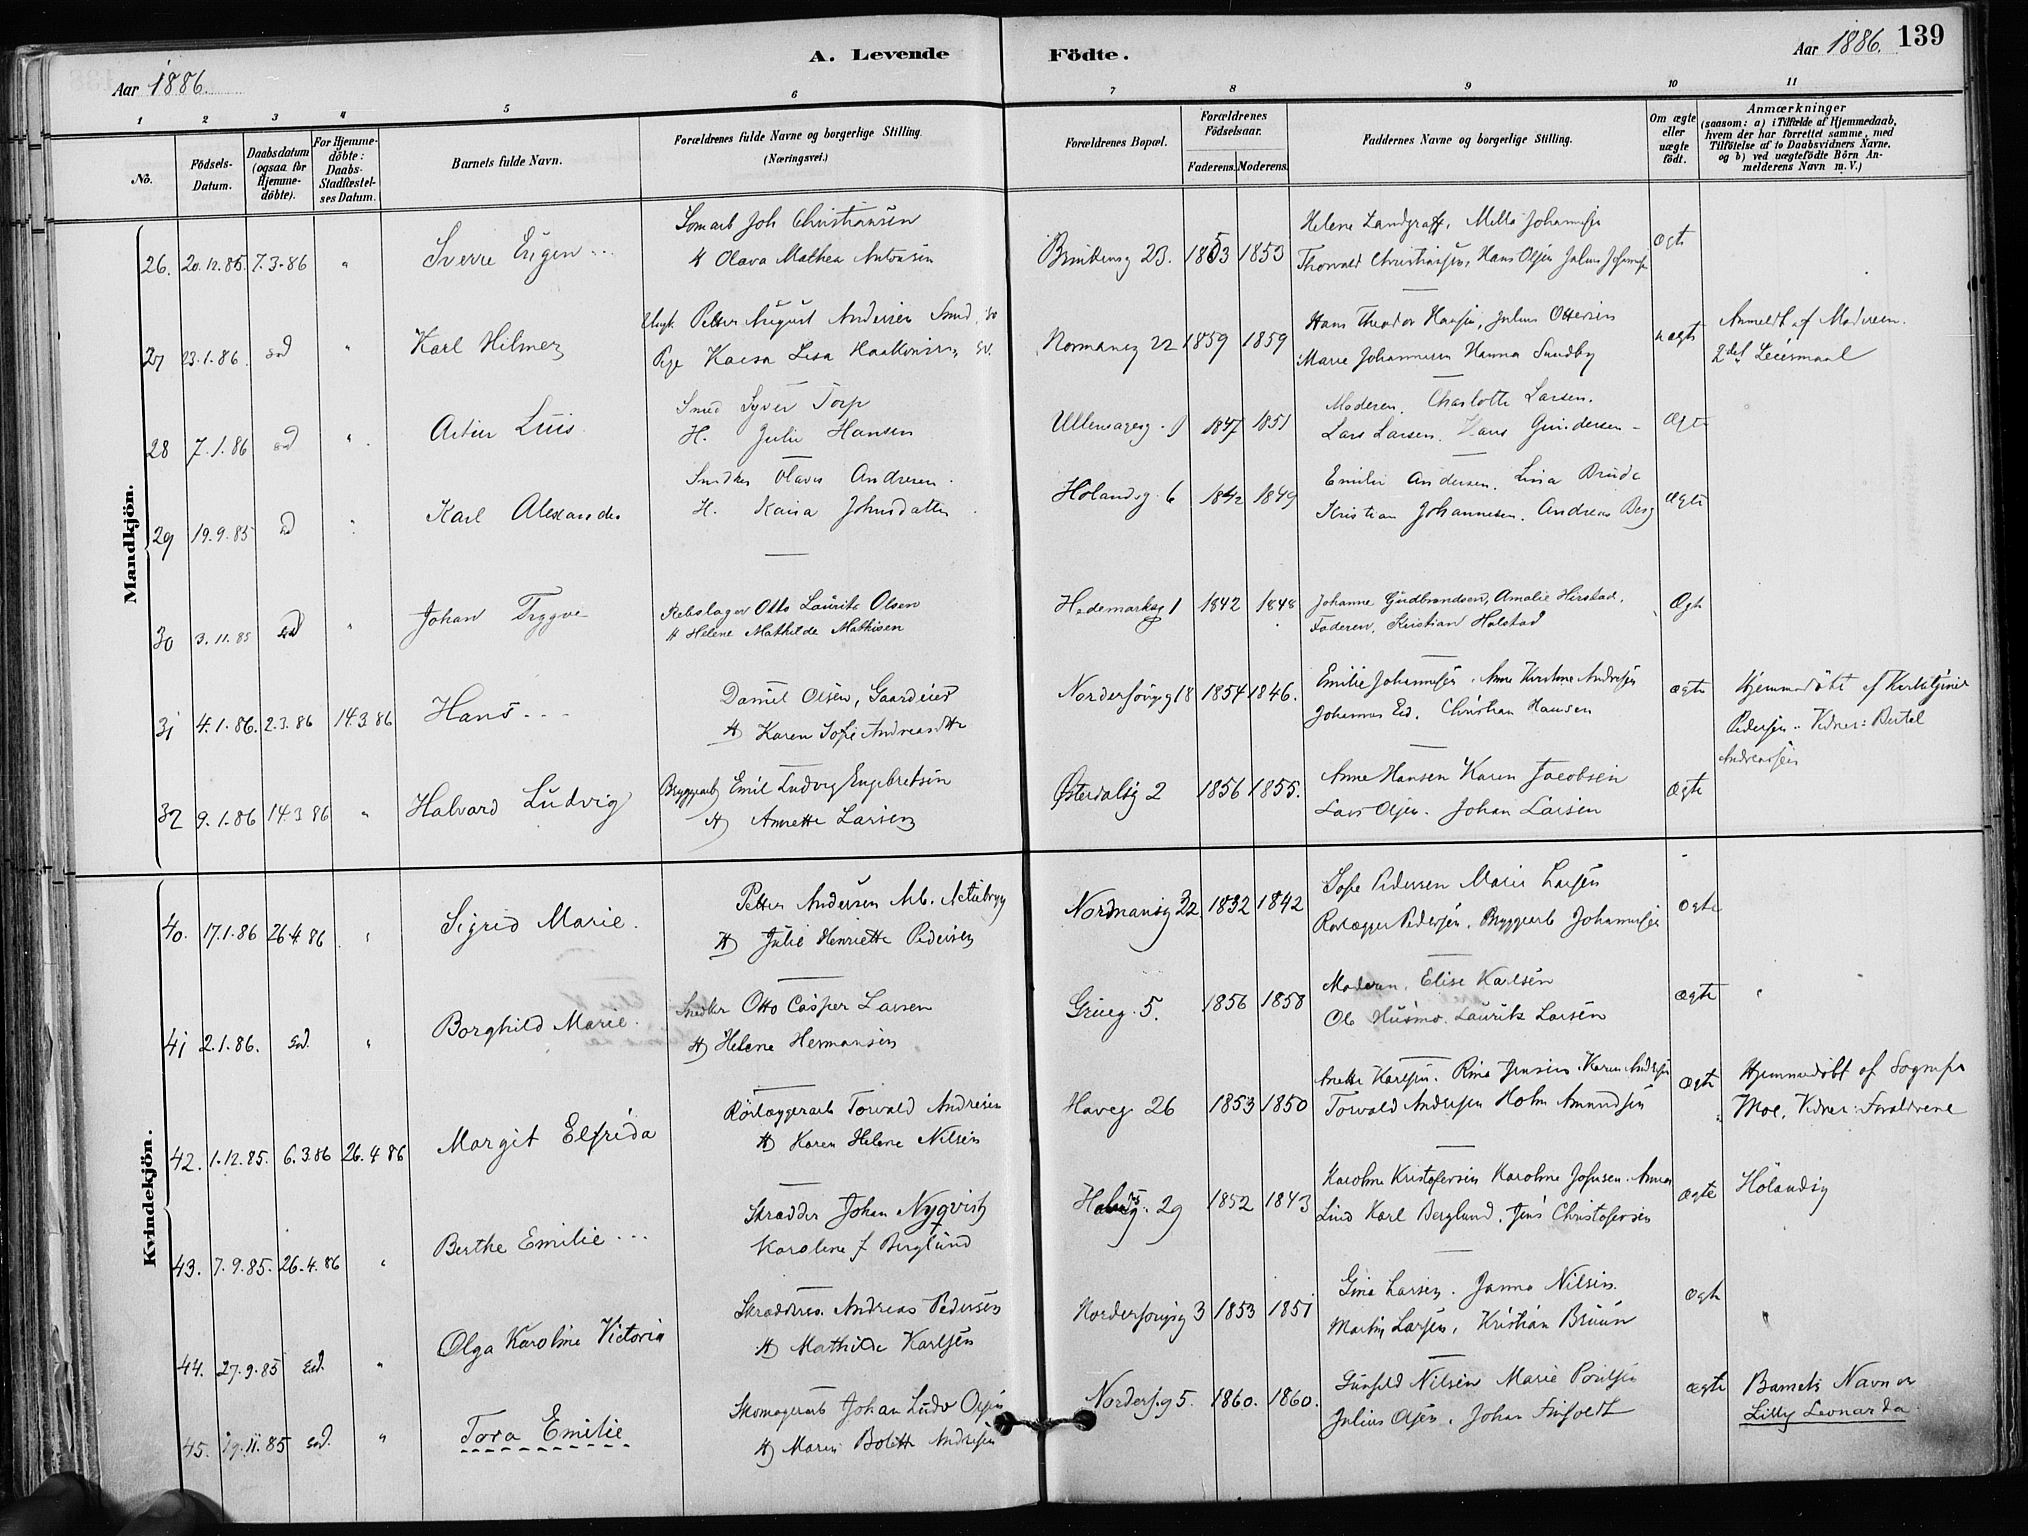 A. Levende Födte.
Aar 1886.
Aar 1886. 139
1 2 3 4 5 6 7 8 9 10 11
No.
Födsels-Datum.
Daabsdatum (ogsaa for Hjemme-döbte).
For Hjemme-döbte: Daabs-Stadfæstel-ses Datum.
Barnets fulde Navn.
Forældrenes fulde Navne og borgerlige Stilling. (Næringsvei.)
Forældrenes Bopæl.
Forældrenes Födselsaar.
Faderens. Moderens.
Faddernes Navne og borgerlige Stilling.
Om ægte eller uægte födt.
Anmærkninger (saasom: a) i Tilfælde af Hjemmedaab, hvem der har forrettet samme, med Tilföielse af to Daabsvidners Navne, og b) ved uægtefödte Börn An-melderens Navn m. V.)
Mandkjön.
26. 20.12.85. 7.3.86 " Sverre Eugen
Joh Christiansen
H Olava Mathea Antonsen
23. 1853 1853
Helene Landgraff, Milla Johannesen
Thorvald Christiansen, Hans Olsen Julius Johannesen
ægte
27 23.1.86 sd " Karl Hilmer
Ungk. Petter August Andersen Smed
Pige Kaesa Lisa Haakonsen
Normansg 22 1859 1859
Hans Theodor Hansen, Julius Ottersen
Marie Johannesen Hanna Sundby
uægte
Anmeldt af Moderen.
2det Leiermaal
28 7.1.86 sd " Artur Luis
Smed Syver Torp
H. Julie Hansen
Ullensagerg. 9 1847 1851
Moderen. Charlotte Larsen.
Lars Larsen. Hans Gundersen
Ægte
29 19.9.85 sd " Karl Alexander
Snedker Olavus Andresen
H. Kaisa Johnsdatter
Hölandsg. 6 1842 1849
Emilie Andersen. Lina Brude
Kristian Johannesen. Andreas Berg
Ægte
30 3.11.85 sd " Johan Trygve
Rebslager Otto Laurits Olsen
H Helene Mathilde Mathisen
Hedemarksg 1 1842 1848
Johanne Gudbrandsen, Amalie Hirstad,
Faderen, Kristian Halstad
Ægte
31 4.1.86. 2.3.86 14.3.86 Hans
Daniel Olsen, Gaardeier
H Karen Sofie Andreasdtr
18 1854 1846.
Emilie Johannesen, Anne Kirstine Andresen
Johannes Eid. Christian Hansen
ægte
Hjemmedöbt af
Pedersen. Vidner: Bertel
Andreassen
32 9.1.86 14.3.86 " Halvard Ludvig
Bryggearb Emil Ludvig Engebretsen
H Annette Larsen
Østerdalsg 2 1856 1855.
Anne Hansen Karen Jacobsen
Lars Olsen. Johan Larsen
Ægte
Kvindekjön.
40. 17.1.86 26.4.86 " Sigrid Marie.
Petter Andersen Arb.
H Julie Henriette Pedersen
Normansg 32 1832 1842
Sofie Pedersen Marie Larsen
Pedersen, Bryggearb Johannesen
Ægte
41 2.1.86. sd. " Borghild Marie.
Snedker Otto Casper Larsen
H Helene Hermansen
Grüeg. 5. 1856 1858
Moderen, Elise Karlsen
Ole Husmo. Laurits Larsen
ægte "
42. 1.12.85. 6.3.86 26.4.86 Margit Elfrida
Rörlæggerarb Torvald Andresen
H Karen Helene Nilsen
Haveg. 26 1853 1850
Anette Karlsen. Rina Jensen. Karen Andresen
Torvald Andresen Holm Amundsen
Ægte
Hjemmedöbt af Sognepr
Moe, Vidner: Forældrene
43. 7.9.85. 26.4.86 " Berthe Emilie
Skrædder Johan Nyqvist
Karoline f Berglund
29 1852 1843
Karoline Kristofersen Karoline Johnsen. Anna
Lind Karl Berglund. Jens Christofersen
Ægte
Hölandsg
44. 27.9.85 sd. " Olga Karoline Victoria
Skrædders. Andreas Pedersen
H Mathilde Karlsen
3 1853 1851
Gina Larsen. Janna Nilsen.
Martin Larsen, Kristian Bruun
Ægte "
45. 19.11.85 sd. " Tora Emilie
Skomagerarb Johan Ludv Olsen
H Maren Bolette Andresen
5. 1860. 1860.
Gunhild Nilsen Marie Poulsen
Julius Olsen. Johan
ægte
Barnets Navn er
Lilly Leonarda.